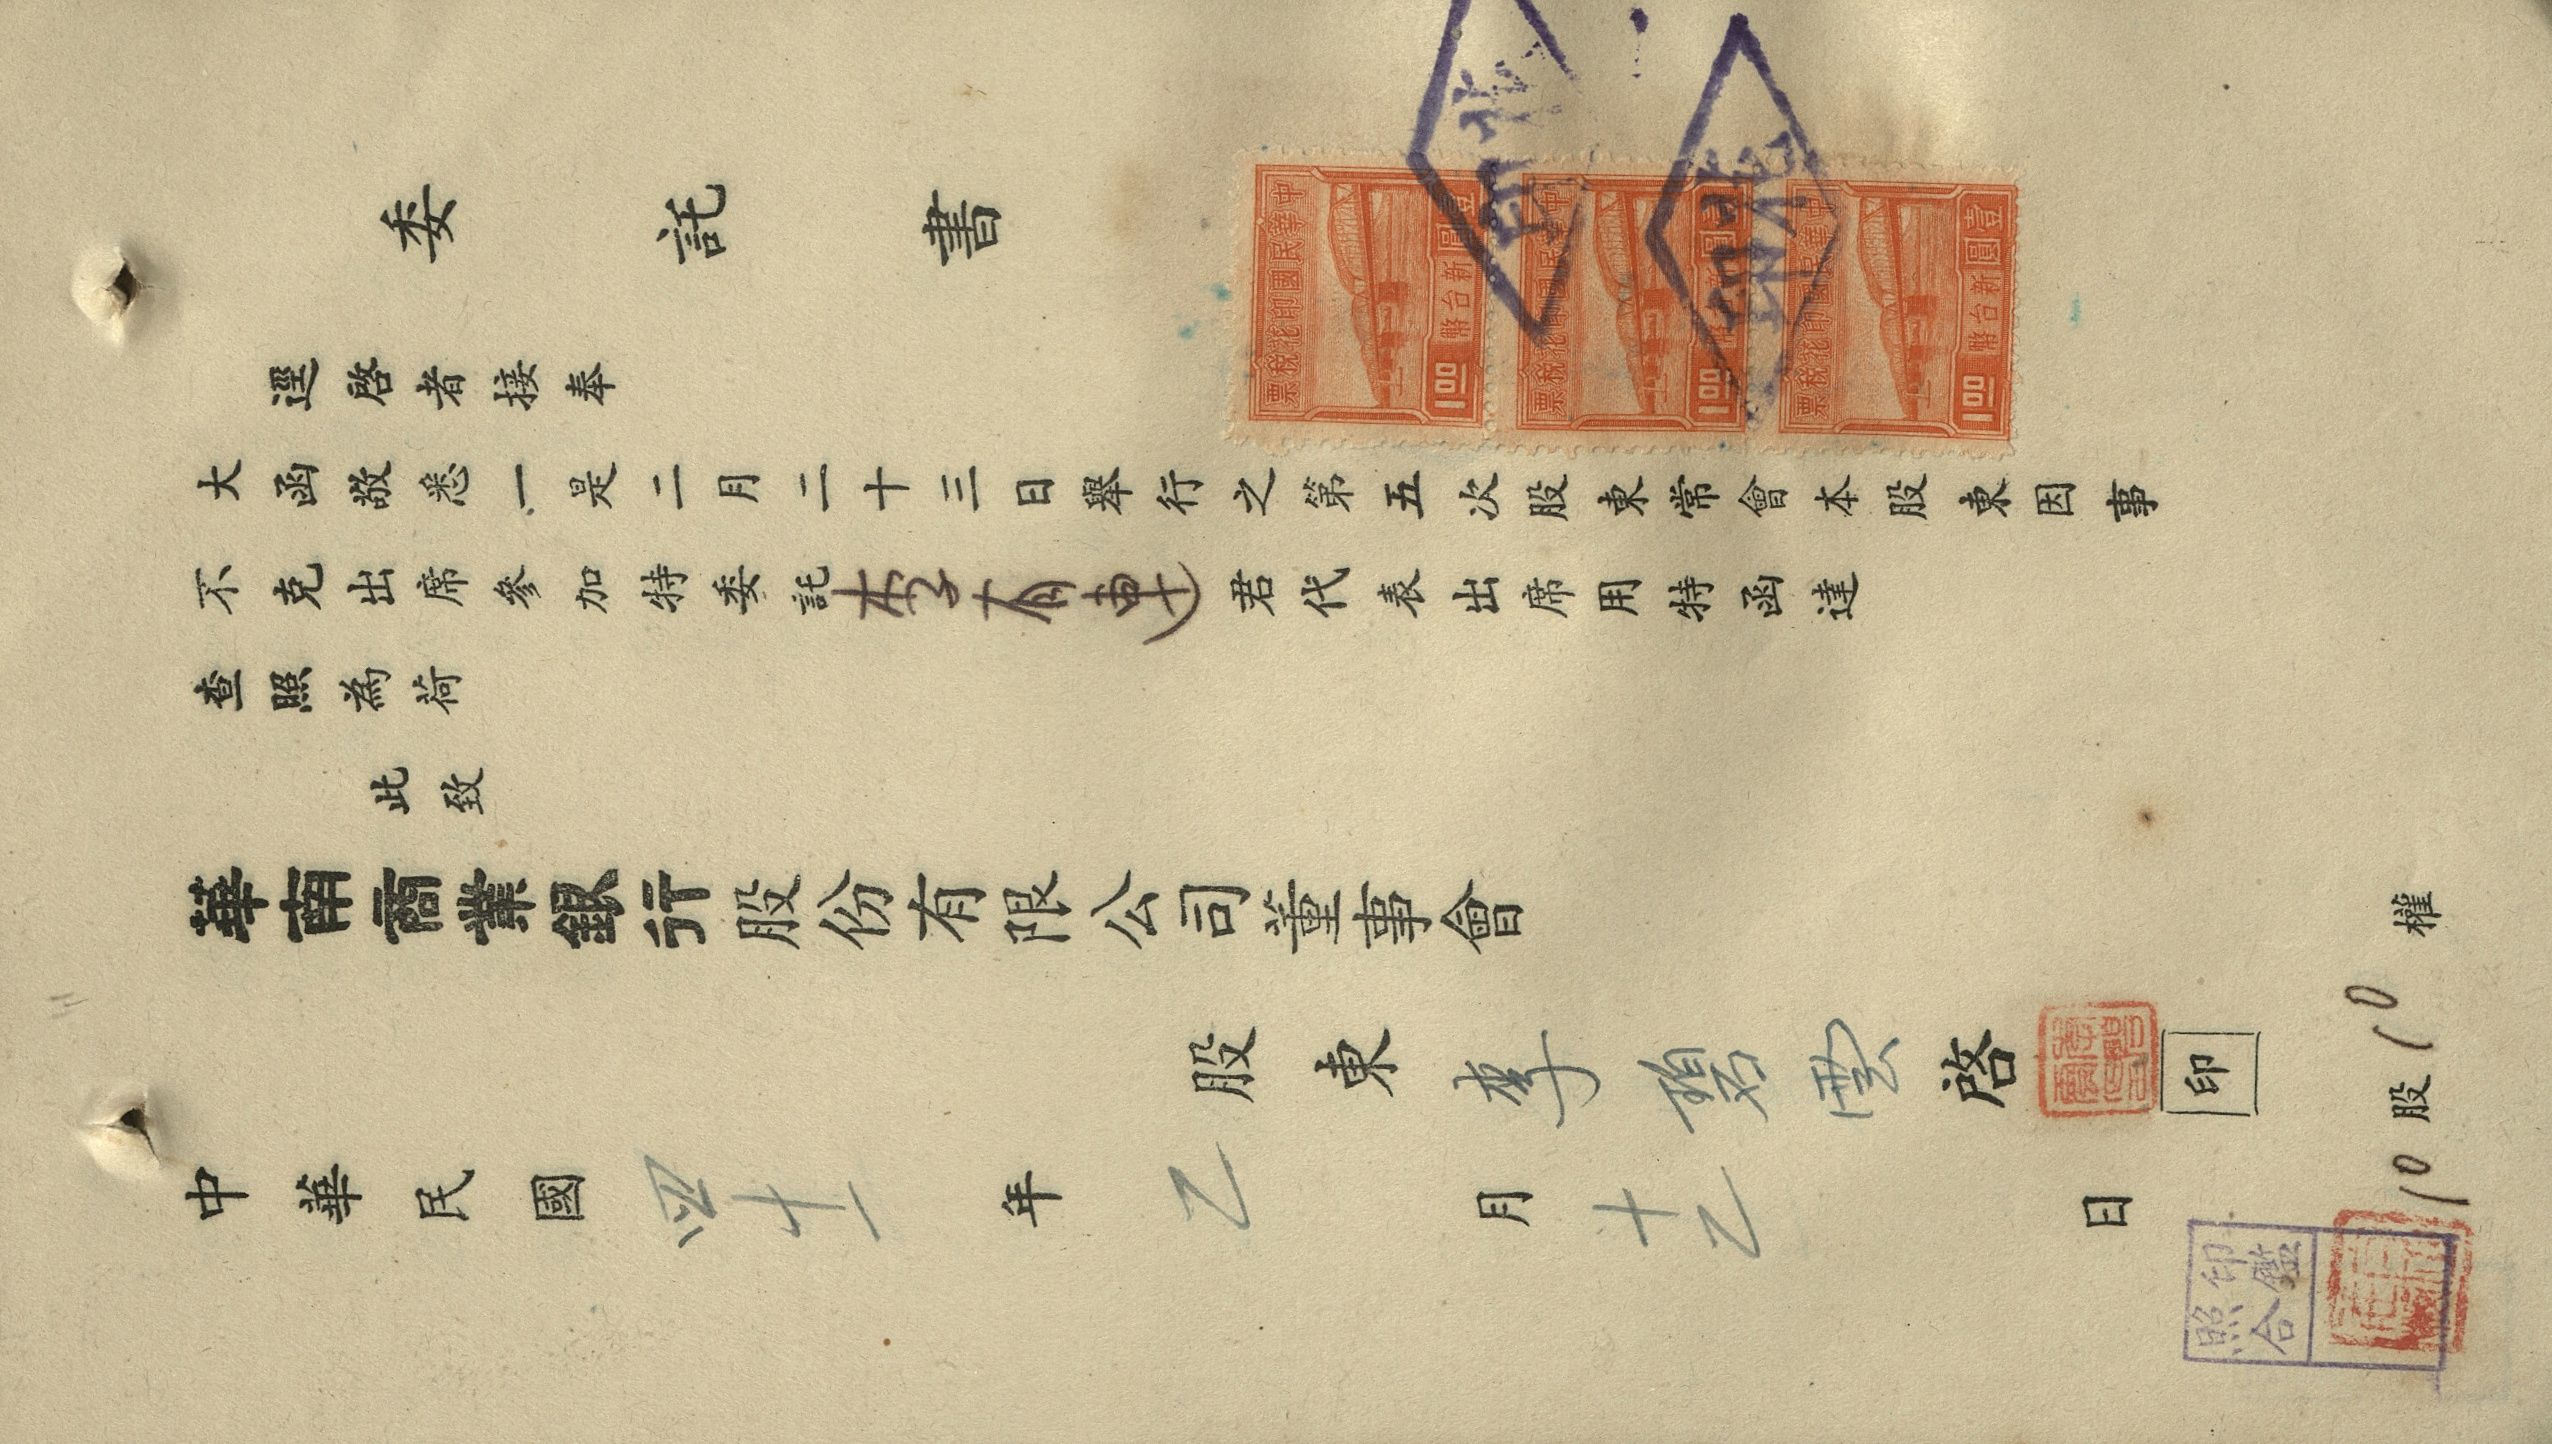 委託書
逕啓者接奉
大函敬悉一是二月二十三日舉行之第五次股東常會本股東因事
不克出席參加特委託李有連君代表出席用特函達
查照為荷
此致
華南商業銀行股份有限公司董事會
股東李碧雲啓
印
中華民國四十一年乙月十乙日
10股10權
印鑑
照合
中華民國印花稅票
壹圓
新台幣
1.00
中華民國印花稅票
壹圓
新台幣
1.00
中華民國印花稅票
壹圓
新台幣
1.00